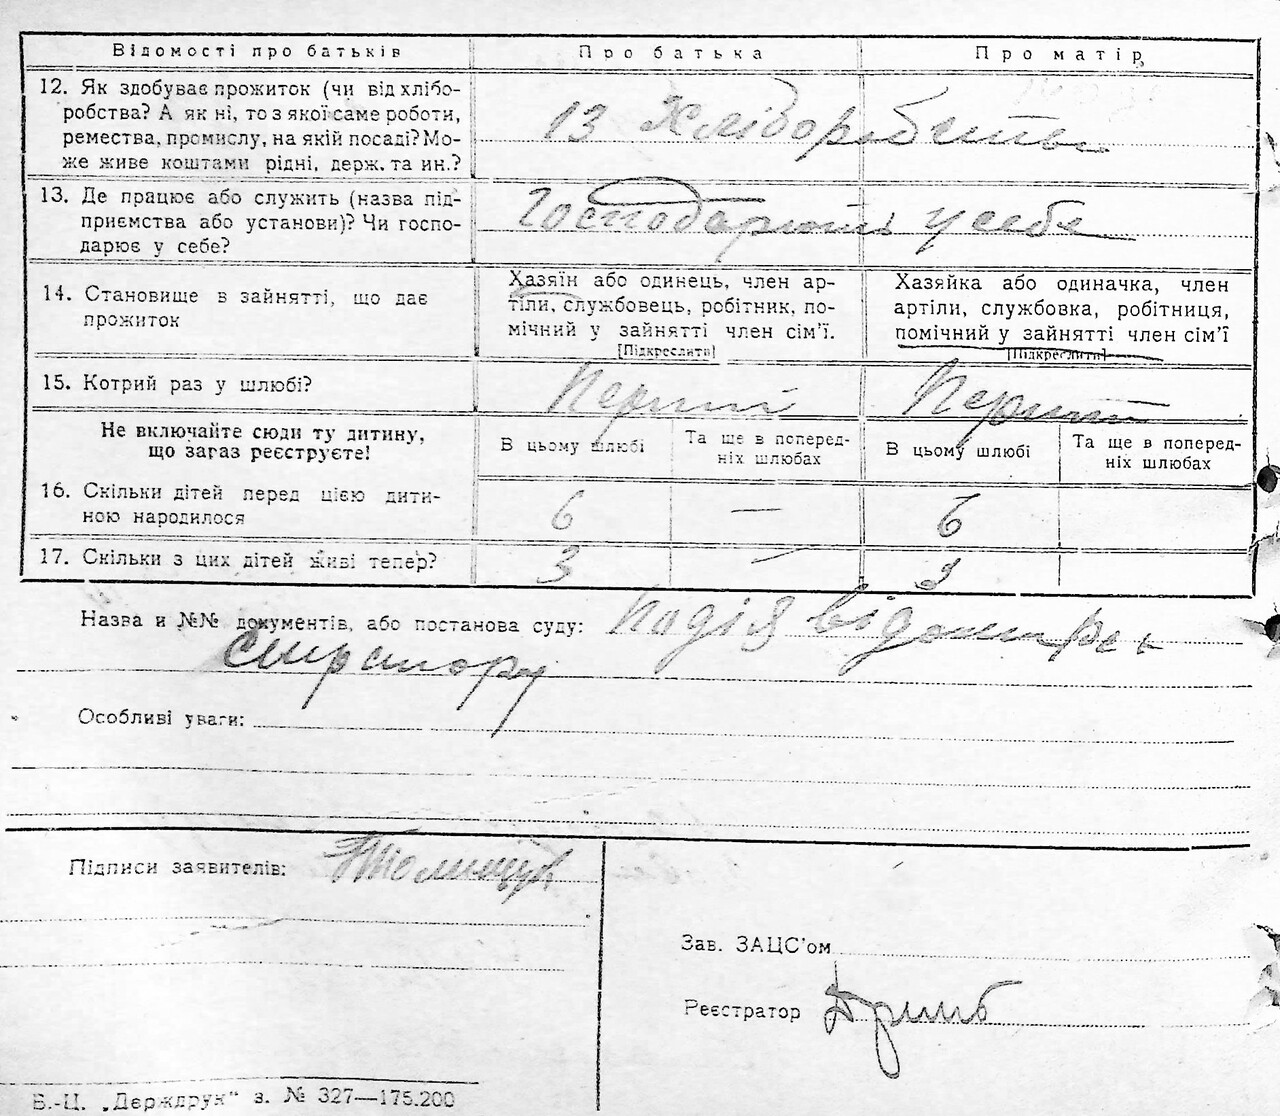 Відомості про батьків
Про батька
Про матір
12. Як здобуває прожиток (чи від хлібо-
робства? А як ні, то з якої саме роботи,
ремества, промислу, на якій посаді? Мо-
же живе коштами рідні, держ. та ин.?
13 Хліборобство
13. Де працює або служить (назва під-
приємства або установи)? Чи госпо-
дарює у себе?
Господарюють у себе
14. Становище в зайнятті, що дає
прожиток
Хазяїн або одинець, член ар-
тіли, службовець, робітник, по-
мічний у зайнятті член сім'ї.
[Підкреслити]
Хазяйка або одиначка, член
артіли, службовка, робітниця,
помічний у зайнятті член сім'ї
[Підкреслити]
15. Котрий раз у шлюбі?
Перший
Перший
Не включайте сюди ту дитину,
що загаз реєструєте!
В цьому шлюбі
Та ще в поперед-
ніх шлюбах
В цьому шлюбі
Та ще в поперед-
ніх шлюбах
16. Скільки дітей перед цією дити-
ною народилося
6
—
6
17. Скільки з цих дітей живі тепер?
3
—
3
Назва и №№ документів, або постанова суду: Подія відома
Особливі уваги:
Підписи заявителів:
Зав. ЗАЦС'ом
Реєстратор
Б.-Ц. „Держдрук" з. № 327—175.200